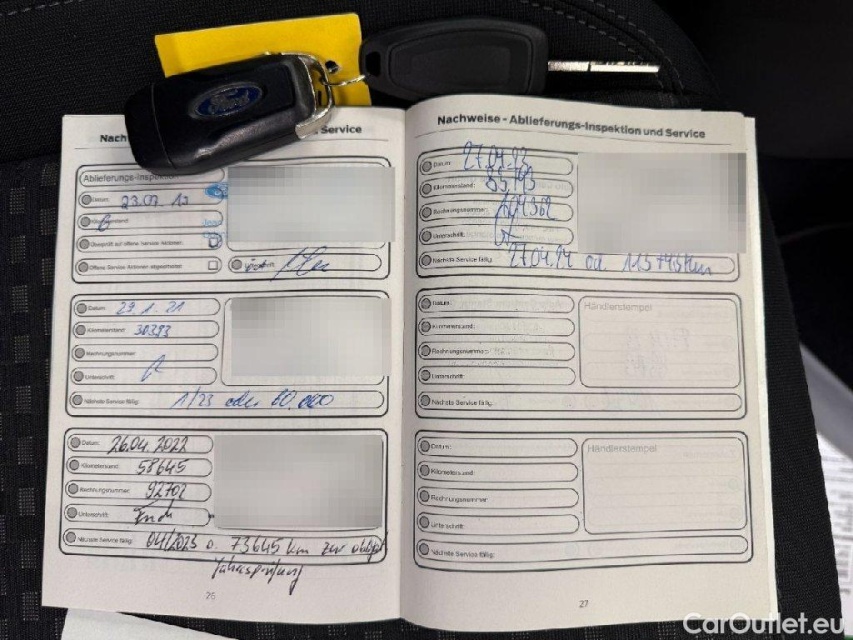 Ford
Nach
Service
Ablieferungs-Inspektion
Datum: 23.07.19
Kilometerstand: 6
Überprüft auf offene Service Aktionen:
Offene Service Aktionen abgearbeitet:
Datum: 29.1.21
Kilometerstand: 30393
Rechnungsnummer:
Unterschrift:
Nächste Service fällig: 1/23 oder 60.000
Datum: 26.04.2022
Kilometerstand: 58645
Rechnungsnummer: 92702
Unterschrift:
Nächste Service fällig: 04/2023 o. 73645 km zur
Jahresprüfung
26
Nachweise - Ablieferungs-Inspektion und Service
Datum: 27.04.23
Kilometerstand: 85743
Rechnungsnummer: 104362
Unterschrift:
Nächste Service fällig: 27.04.24 od. 115745 km
Datum:
Händlerstempel
Kilometerstand:
Rechnungsnummer:
Unterschrift:
Nächste Service fällig:
Datum:
Händlerstempel
Kilometerstand:
Rechnungsnummer:
Unterschrift:
Nächste Service fällig:
27
CarOutlet.eu